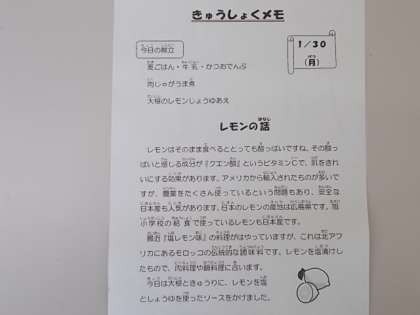 きゅうしょくメモ
1/30
(月)
今日の献立
麦ごはん・牛乳・かつおでんぶ
肉じゃがうま煮
大根のレモンじょうゆあえ
レモンの話
レモンはそのまま食べるととっても酸っぱいですね。その酸っ
ぱいと感じる成分が『クエン酸』というビタミンCで、肌をきれ
いにする効果があります。アメリカから輸入されたものが多いで
すが、農薬をたくさん使っているという問題もあり、安全な
日本産も人気があります。日本のレモンの産地は広島県です。旭
小学校の給食で使っているレモンも日本産です。
最近『塩レモン味』の料理がはやっていますが、これは北アフ
リカにあるモロッコの伝統的な調味料です。レモンを塩漬けし
たもので、肉料理や魚料理に合います。
今日は大根ときゅうりに、レモンを塩
としょうゆを使ったソースをかけました。